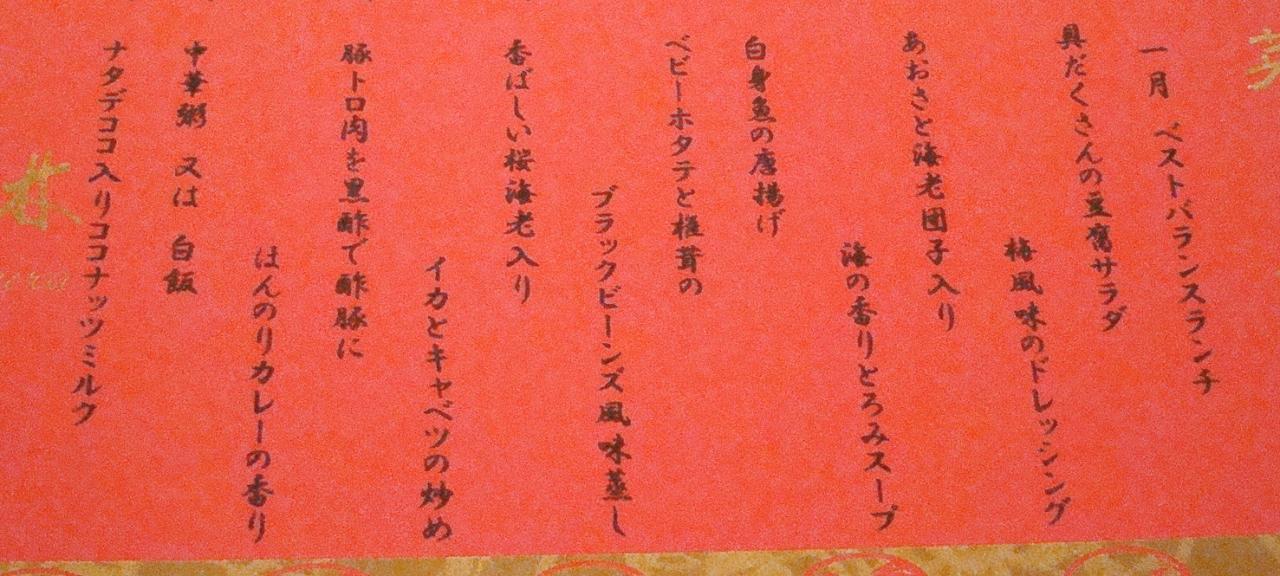 一月 ベストバランスランチ
具だくさんの豆腐サラダ
梅風味のドレッシング
あおさと海老団子入り
海の香りとろみスープ
白身魚の唐揚げ
ベビーホタテと椎茸の
ブラックビーンズ風味蒸し
香ばしい桜海老入り
イカとキャベツの炒め
豚トロ肉を黒酢で酢豚に
ほんのりカレーの香り
中華粥 又は 白飯
ナタデココ入りココナッツミルク
林